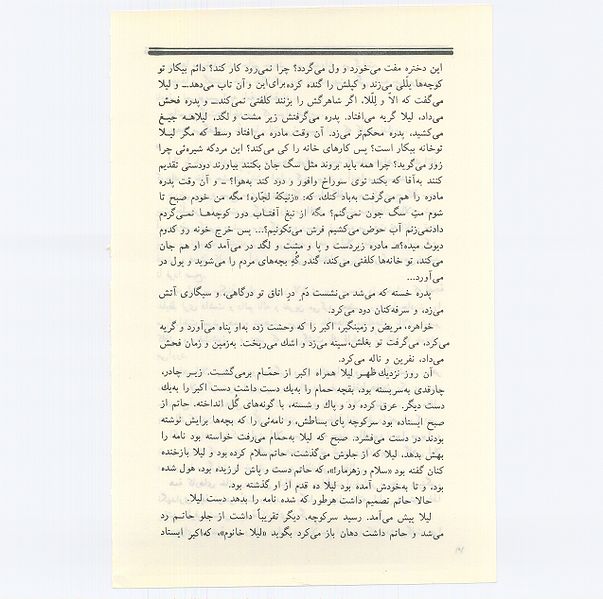 این دختره مفت می‌خورد و ول می‌گردد؟ چرا نمی‌رود کار کند؟ دائم بیکار تو
کوچه‌ها پلّلی می‌زند و کپلش را گنده کرده برای این و آن تاب می‌دهد ــ و لیلا
می‌گفت که الاّ و لِلّا، اگر شاهرگش را بزنند کلفتی نمی‌کند ــ و پدره فحش
می‌داد، لیلا گریه می‌افتاد. پدره می‌گرفتش زیر مشت و لگد. لیلاهه جیغ
می‌کشید. پدره محکم‌تر می‌زد. آن وقت مادره می‌افتاد وسط که مگر لیلا
توخانه بیکار است؟ پس کارهای خانه را کی می‌کند؟ این مردکه شیره‌ئی چرا
زور می‌گوید؟ چرا همه باید بروند مثل سگ جان بکنند بیاورند دودستی تقدیم
کنند به‌آقا که بکند توی سوراخ وافور و دود کند به‌هوا؟ ــ و آن وقت پدره
مادره را هم می‌گرفت به‌باد کتك، که: «زنیکهٔ لجّاره! مگه من خودم صبح تا
شوم مثِ سگ جون نمی‌کنم؟ مگه از تیغ آفتاب دور کوچه‌ها نمی‌گردم
دادنمی‌زنم آب حوض می‌کشیم فرش می‌تکونیم؟... پس خرج خونه رو کدوم
دیوث میده؟» مادره زیردست و پا و مشت و لگد در می‌آمد که او هم جان
می‌کند، تو خانه‌ها کلفتی می‌کند، گندو گُهِ بچه‌های مردم را می‌شوید و پول در
می‌آورد...
پدره خسته که می‌شد می‌نشست دَم در اتاق تو درگاهی، و سیگاری آتش
می‌زد، و سرفه‌کنان دود می‌کرد.
خواهره، مریض و زمینگیر، اکبر را که وحشت زده به‌او پناه می‌آورد و گریه
می‌کرد، می‌گرفت تو بغلش، سینه می‌زد و اشك می‌ریخت. به‌زمین و زمان فحش
می‌داد، نفرین و ناله می‌کرد.
آن روز نزدیك ظهر لیلا همراه اکبر از حمّام برمی‌گشت. زیر چادر،
چارقدی به‌سربسته بود، بقچه حمام را به‌یك دست داشت دست اکبر را به‌یك
دست دیگر. عرق کرده و پاك و شسته، با گونه‌های گُل انداخته. حاتم از
صبح ایستاده بود سرکوچه پای بساطش، و نامه‌ئی را که بچه‌ها برایش نوشته
بودند در دست می‌فشرد. صبح که لیلا به‌حمام می‌رفت خواسته بود نامه را
بهش بدهد، لیلا که از جلوش می‌گذشت، حاتم سلام کرده بود و لیلا بازخنده
کنان گفته بود «سلام و زهرمار!»، که حاتم دست و پاش لرزیده بود، هول شده
بود، و تا به‌خودش آمده بود لیلا ده قدم از او گذشته بود.
حالا حاتم تصمیم داشت هرطور که شده نامه را بدهد دست لیلا.
لیلا پیش می‌آمد. رسید سرکوچه. دیگر تقریباً داشت از جلو حاتم رد
می‌شد و حاتم داشت دهان باز می‌کرد بگوید «لیلا خانوم»، که‌اکبر ایستاد